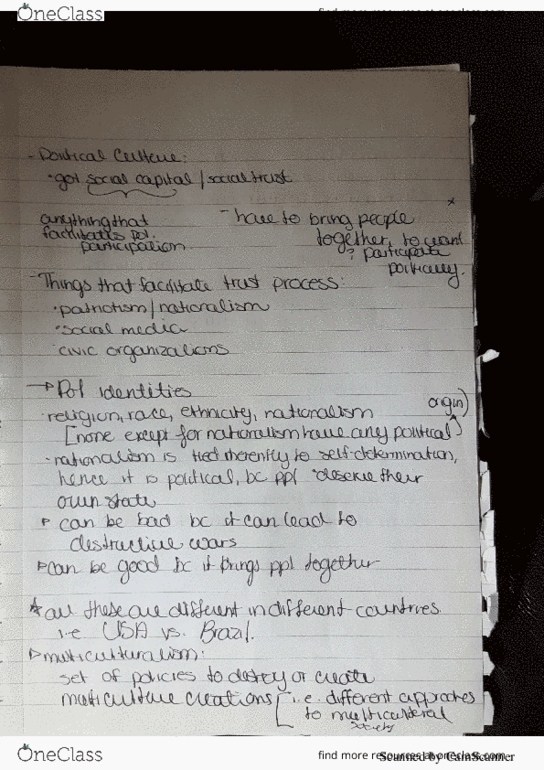 OneClass
find more resources at oneclass.com
- Political Culture:
• got social capital / social trust
anything that
facilitates pol.
participation.
- have to bring people
together, to want
participate
politically.
- Things that facilitate trust process:
• patriotism / nationalism
• social media
• civic organizations
→ Pol identities
• religion, race, ethnicity, nationalism
[none except for nationalism have any political origin)
- nationalism is tied inherently to self-determination,
hence it is political, bc ppl deserve their
own state
can be bad bc it can lead to
destructive wars
can be good bc it brings ppl together
* all these are different in different countries
i.e USA vs. Brazil.
multiculturalism:
set of policies to destroy or create
multiculture creations [i.e. different approaches
to multicultural
society
OneClass
find more resources at oneclass.com
Scanned by CamScanner